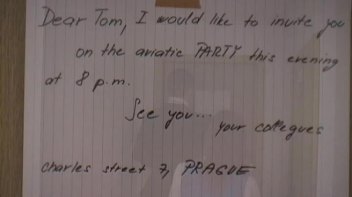 Dear Tom, I would like to invite you
on the aviatic PARTY this evening
at 8 p.m.
See you...
your collegues
charles street 7, PRAGUE